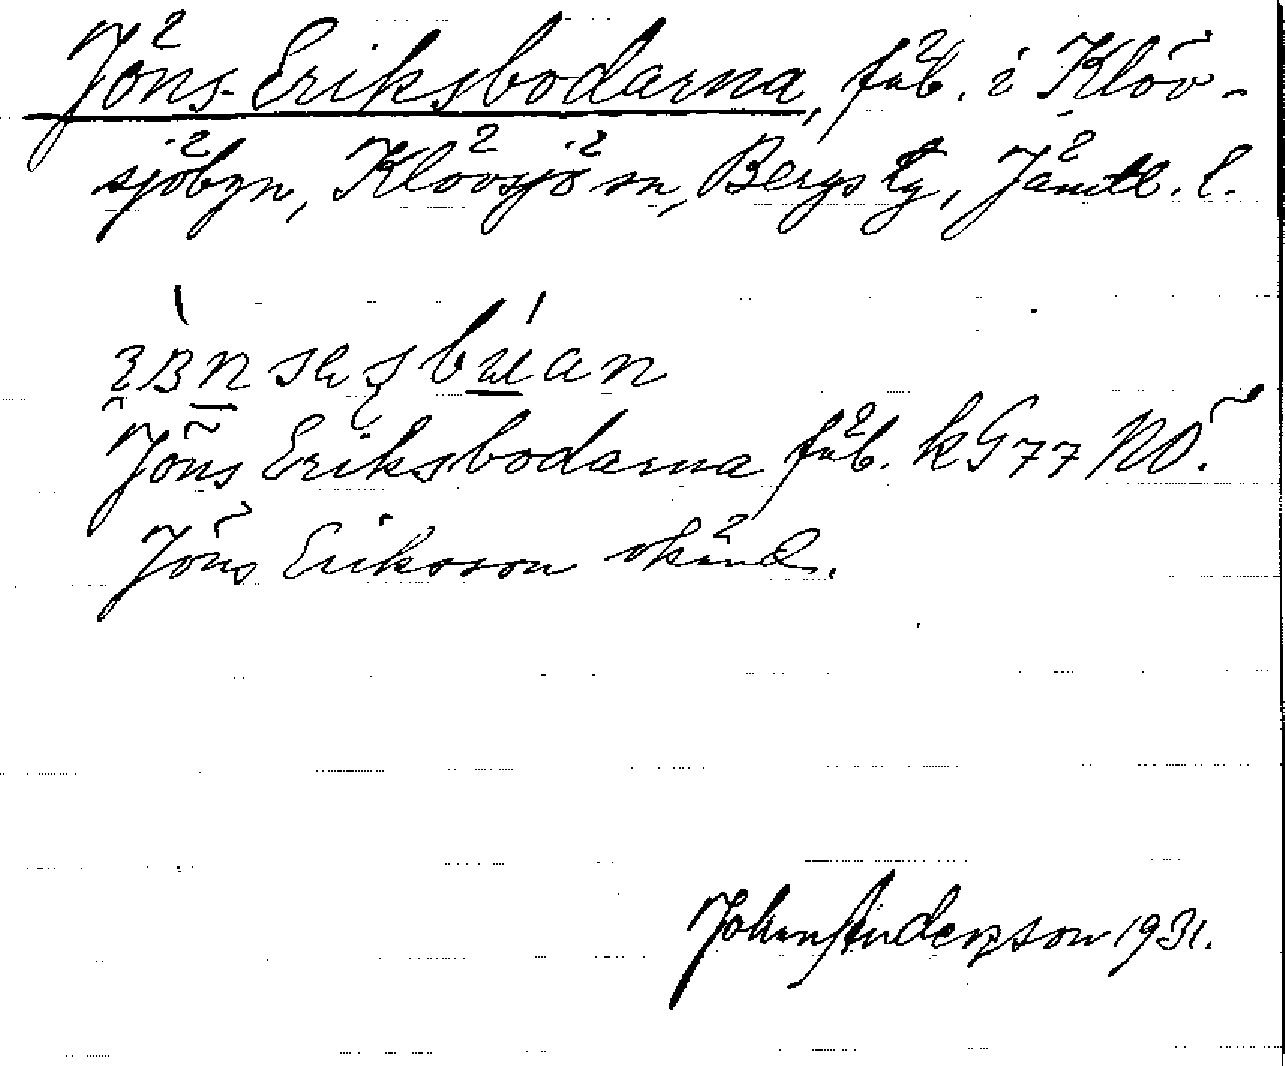 Jöns-Eriksbodarna, fäb. i Klöv-
sjöbyn, Klövsjö sn, Bergs tg, Jämtl. l.
Jöns Eriksbodarna fäb. kG77 NÖ.
Jöns Eriksson okänd.
Johan Anderson 1931.